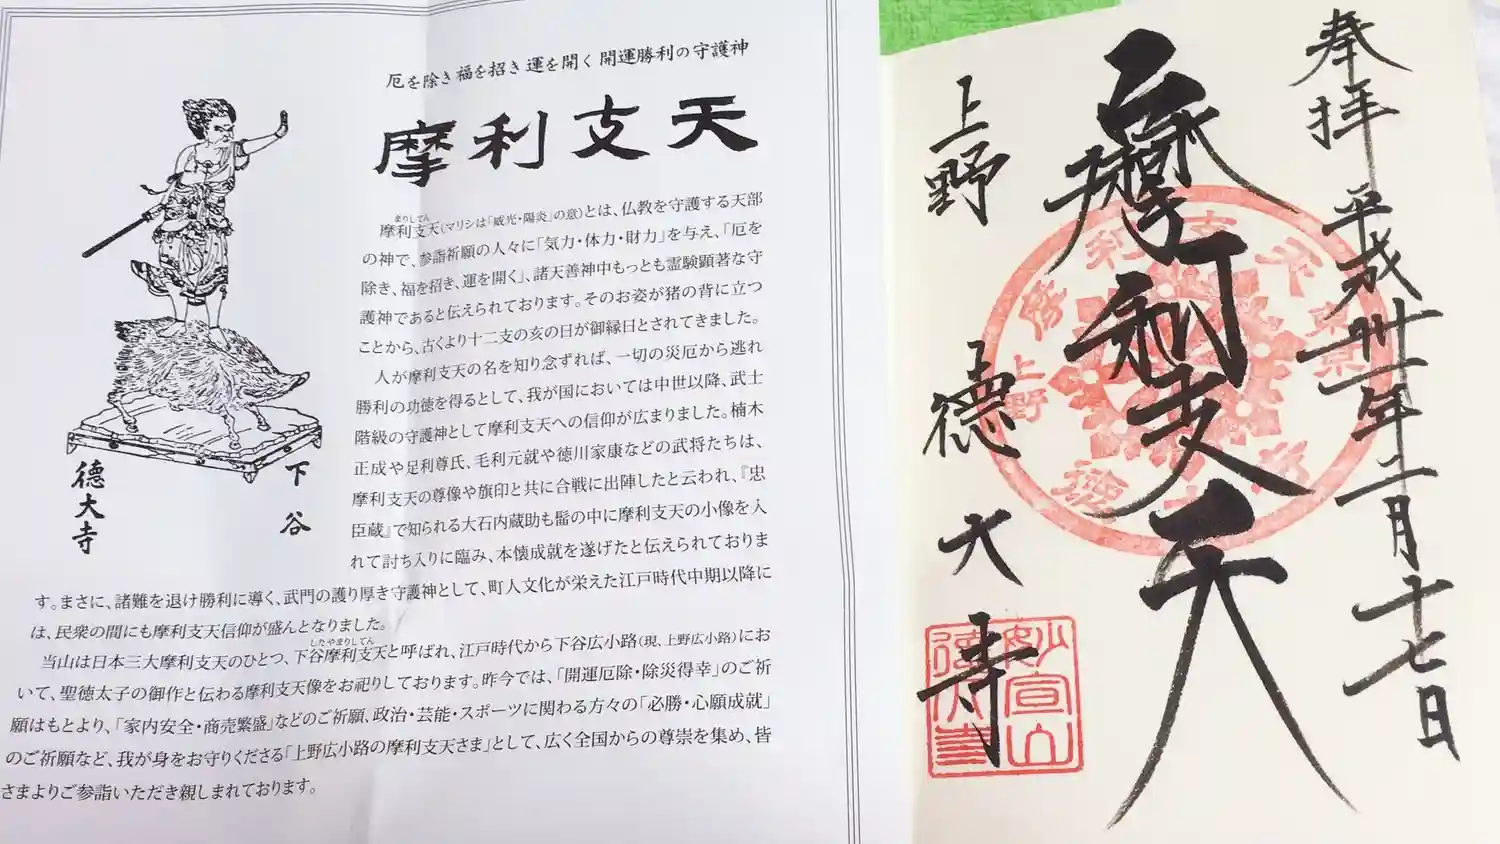 厄を除き福を招き運を開く開運勝利の守護神
摩利支天
まりしてん
摩利支天(マリシは「威光・陽炎」の意)とは、仏教を守護する天部
の神で、参詣祈願の人々に「気力・体力・財力」を与え、「厄を
除き、福を招き、運を開く」、諸天善神中もっとも霊験顕著な守
護神であると伝えられております。そのお姿が猪の背に立つ
ことから、古くより十二支の亥の日が御縁日とされてきました。
人が摩利支天の名を知り念ずれば、一切の災厄から逃れ
勝利の功徳を得るとして、我が国においては中世以降、武士
階級の守護神として摩利支天への信仰が広まりました。楠木
正成や足利尊氏、毛利元就や徳川家康などの武将たちは、
摩利支天の尊像や旗印と共に合戦に出陣したと云われ、『忠
臣蔵』で知られる大石内蔵助も髷の中に摩利支天の小像を入
れて討ち入りに臨み、本懐成就を遂げたと伝えられておりま
す。まさに、諸難を退け勝利に導く、武門の護り厚き守護神として、町人文化が栄えた江戸時代中期以降に
は、民衆の間にも摩利支天信仰が盛んとなりました。
したやまりしてん
当山は日本三大摩利支天のひとつ、下谷摩利支天と呼ばれ、江戸時代から下谷広小路(現、上野広小路)にお
いて、聖徳太子の御作と伝わる摩利支天像をお祀りしております。昨今では、「開運厄除・除災得幸」のご祈
願はもとより、「家内安全・商売繁盛」などのご祈願、政治・芸能・スポーツに関わる方々の「必勝・心願成就」
のご祈願など、我が身をお守りくださる「上野広小路の摩利支天さま」として、広く全国からの尊崇を集め、皆
さまよりご参詣いただき親しまれております。
下谷
徳大寺
奉拝
平成卅一年二月十七日
摩利支天
上野
徳大寺
東京
上野
妙宣山
徳大寺